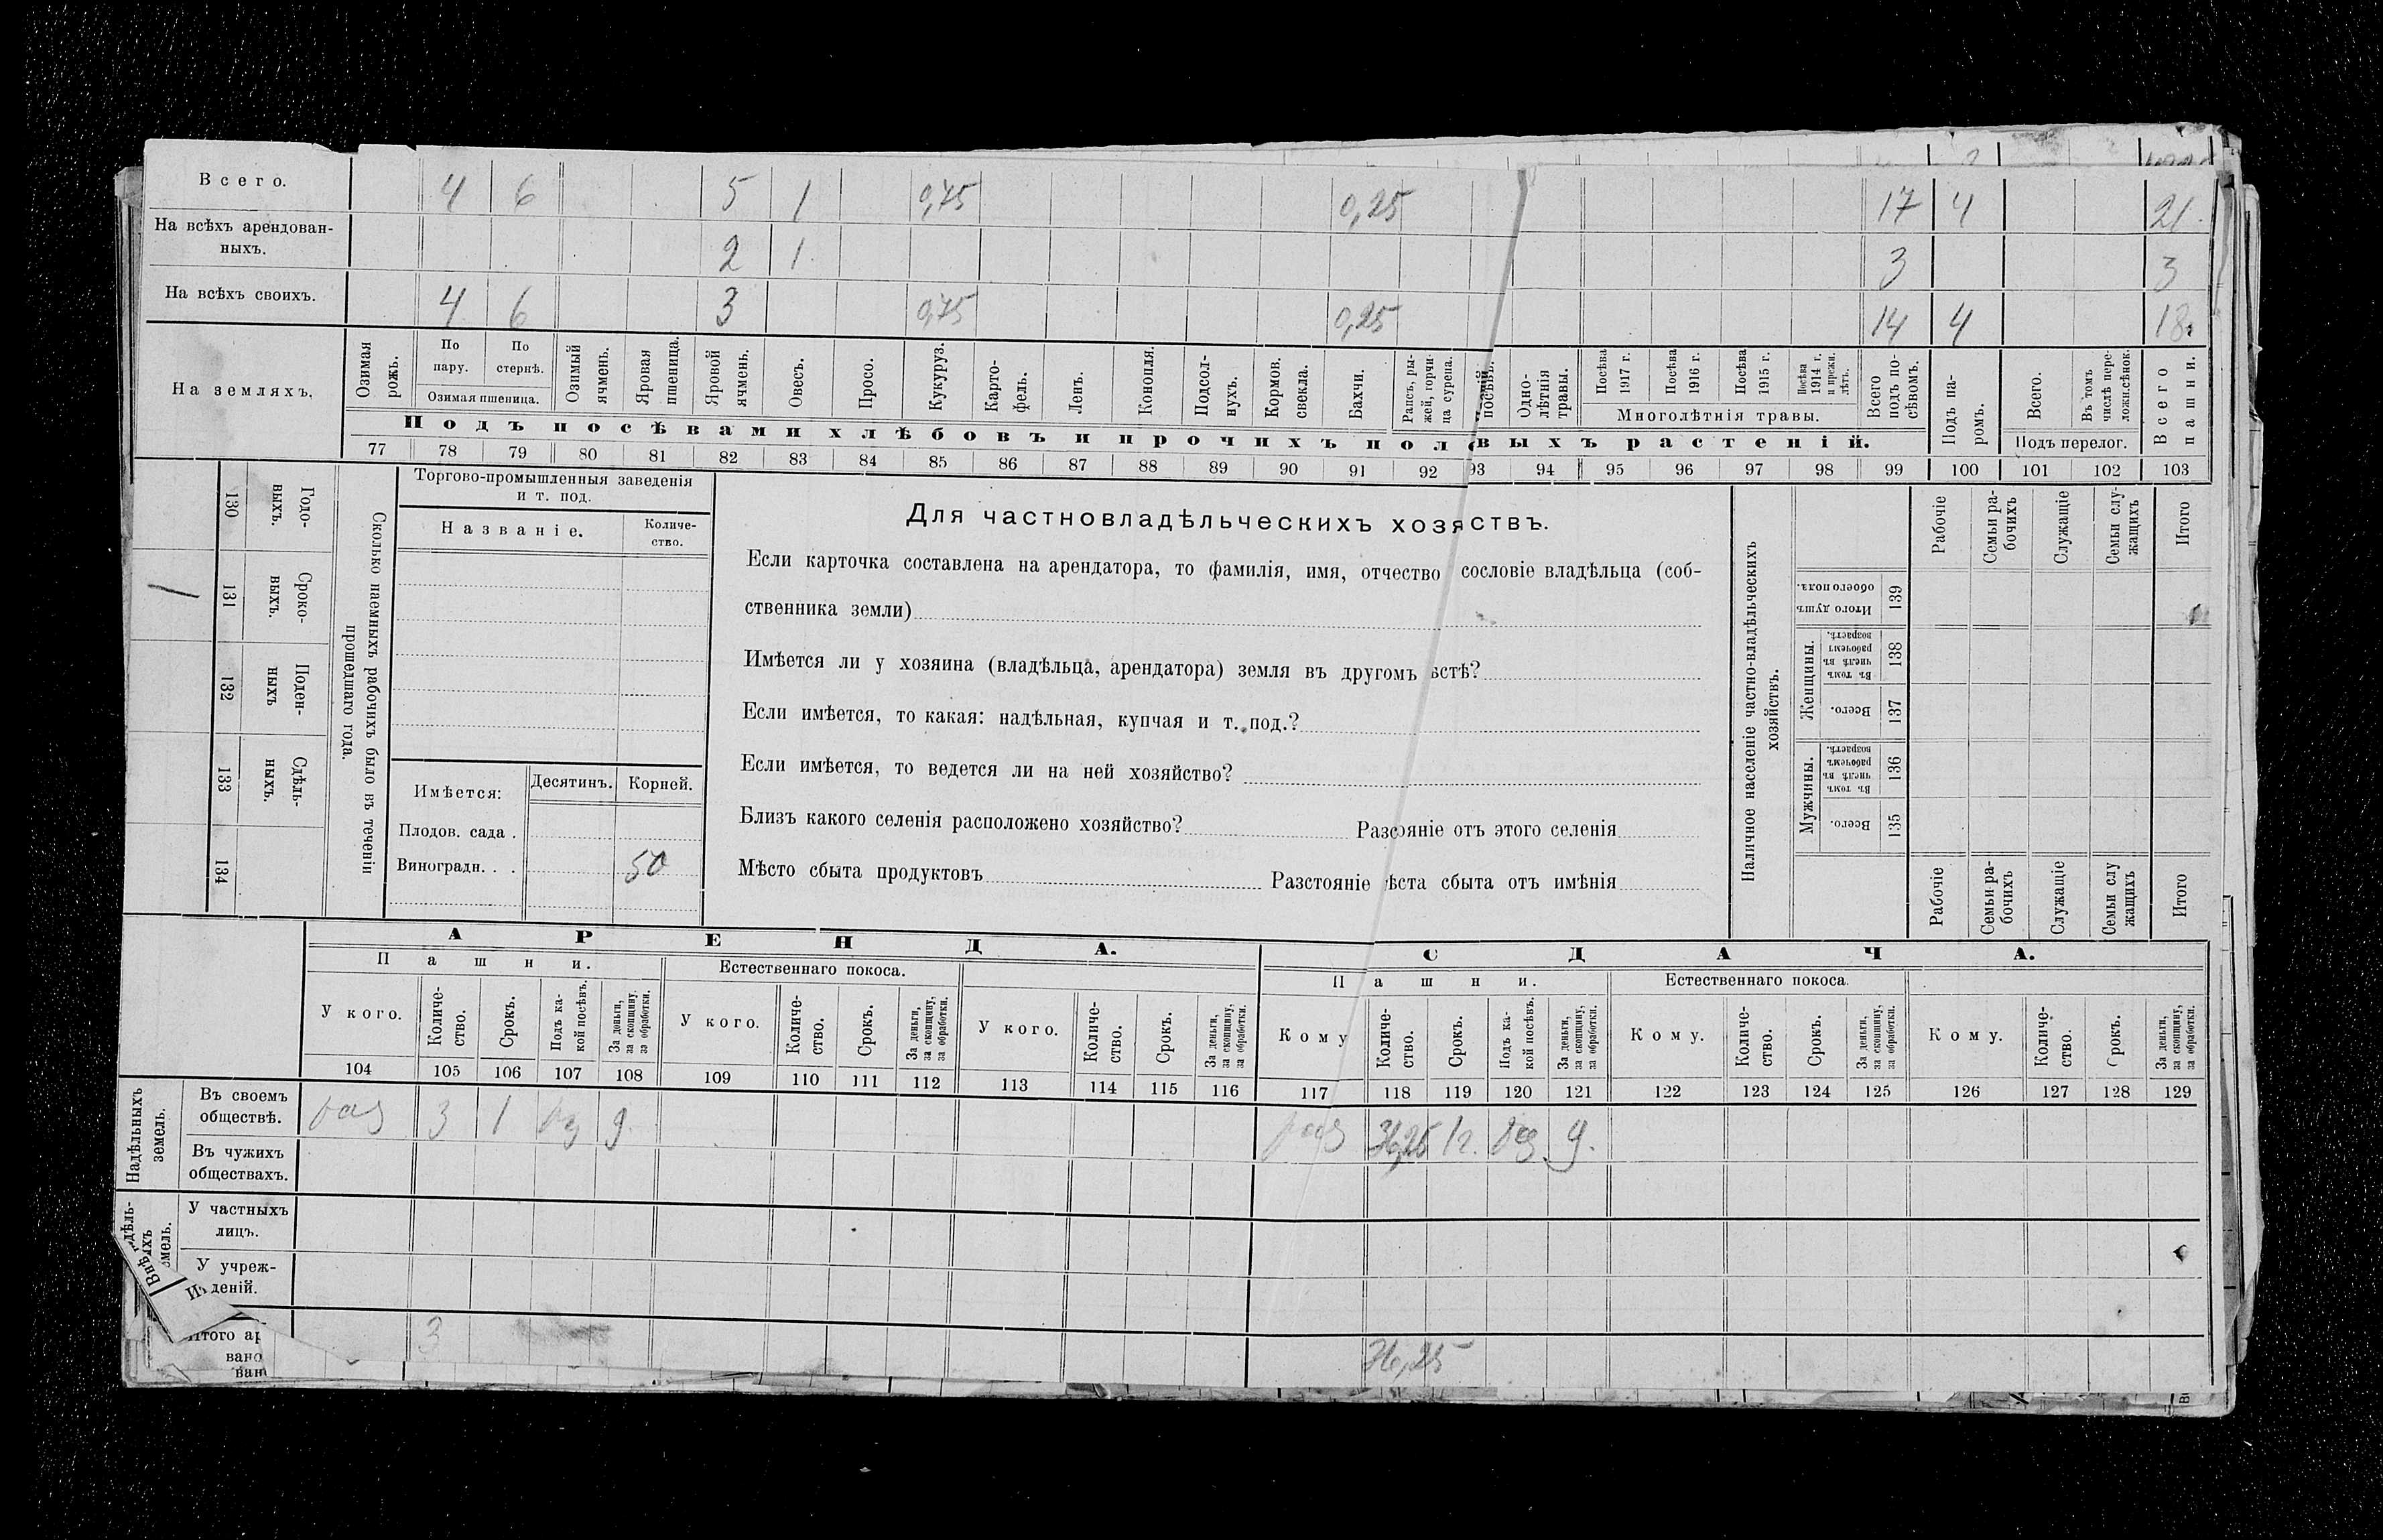 Всего. 4 6 5 1 0,75 0,25 17 4 21
На всѣхъ арендован-
ныхъ. 2 1 3 3
На всѣхъ своихъ. 4 6 3 0,75 0,25 14 4 18
На земляхъ.
Озимая рожь.
По пару.
По стернѣ.
Озимая пшеница.
Озимый ячмень.
Яровая пшеница.
Яровой ячмень.
Овесъ.
Просо.
Кукуруз.
Карто-
фель.
Ленъ.
Конопля.
Подсол-
нухъ.
Кормов.
свекла.
Бахчи.
Рапсъ, ры-
жей, горчи-
ца сурепа.
посѣвъ.
Одно-
лѣтнія
травы.
Посѣва 1917 г.
Посѣва 1916 г.
Посѣва 1915 г.
Посѣва 1914 г. и прежн. лѣтъ.
Многолѣтнія травы.
Всего подъ по-
сѣвомъ.
Подъ па-
ромъ.
Всего.
Въ томъ числѣ пере-
ложн.сѣнок.
Подъ перелог.
Всего пашни.
Подъ посѣвами хлѣбовъ и прочихъ пол выхъ растеній.
77 78 79 80 81 82 83 84 85 86 87 88 89 90 91 92 93 94 95 96 97 98 99 100 101 102 103
130 Годо-
выхъ.
1 131 Сроко-
ныхъ.
132 Поден-
ныхъ
133 Сдѣль-
ныхъ.
134
Сколько наемныхъ рабочихъ было въ теченіи
прошедшаго года.
Торгово-промышленныя заведенія
и т. под.
Названіе.
Количе-
ство.
Имѣется:
Десятинъ.
Корней.
Плодов. сада .
Виноградн. . . 50
Для частновладѣльческихъ хозяствъ.
Если карточка составлена на арендатора, то фамилія, имя, отчество сословіе владѣльца (соб-
ственника земли)
Имѣется ли у хозяина (владѣльца, арендатора) земля въ другомъ ѣстѣ?
Если имѣется, то какая: надѣльная, купчая и т. под.?
Если имѣется, то ведется ли на ней хозяйство?
Близъ какого селенія расположено хозяйство? Разсояніе отъ этого селенія
Мѣсто сбыта продуктовъ Разстояніе ѣста сбыта отъ имѣнія
Наличное населеніе частно-владѣльческихъ
хозяйствъ.
Рабочіе
Семьи ра-
бочихъ
Служащіе
Семьи слу-
жащихъ
Итого
Итого душъ
обоего пола. 139
Женщины.
Въ томъ числѣ въ рабочемъ возрастѣ. 138
Всего. 137
Мужчины.
Въ томъ числѣ въ рабочемъ возрастѣ. 136
Всего. 135
Рабочіе
Семьи ра-
бочихъ
Служащіе
Семьи слу
жащихъ
Итого
АРЕНДА.
СДАЧА.
Пашни.
Естественнаго покоса.
Пашни.
Естественнаго покоса.
У кого.
Количе-
ство.
Срокъ.
Подъ ка-
кой посѣвъ.
За деньги,
за скопщину,
за обработки.
У кого.
Количе-
ство.
Срокъ.
За деньги,
за скопщину,
за обработки.
У кого.
Количе-
ство.
Срокъ.
За деньги,
за скопщину,
за обработки.
Кому
Количе-
ство.
Срокъ.
Подъ ка-
кой посѣвъ.
За деньги,
за скопщину,
за обработки.
Кому.
Количе-
ство.
Срокъ.
За деньги,
за скопщину,
за обработки.
Кому.
Количе-
ство.
рокъ.
За деньги,
за скопщину,
за обработки.
104 105 106 107 108 109 110 111 112 113 114 115 116 117 118 119 120 121 122 123 124 125 126 127 128 129
Надѣльныхъ
земель.
Въ своемъ
обществѣ. раз 3 1 раз д раз 36,25 1г. раз д.
Въ чужихъ
обществахъ.
У частныхъ
лицъ.
У учреж-
деній.
того ар
вано 3 36,25